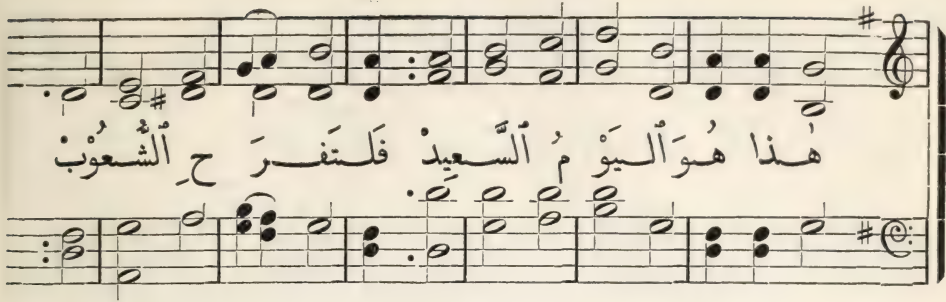 هٰذا هُوَ ٱليَوْ مُ ٱلسَّعِيدْ فَلتَفرَ حِ ٱلشُّعُوْبْ